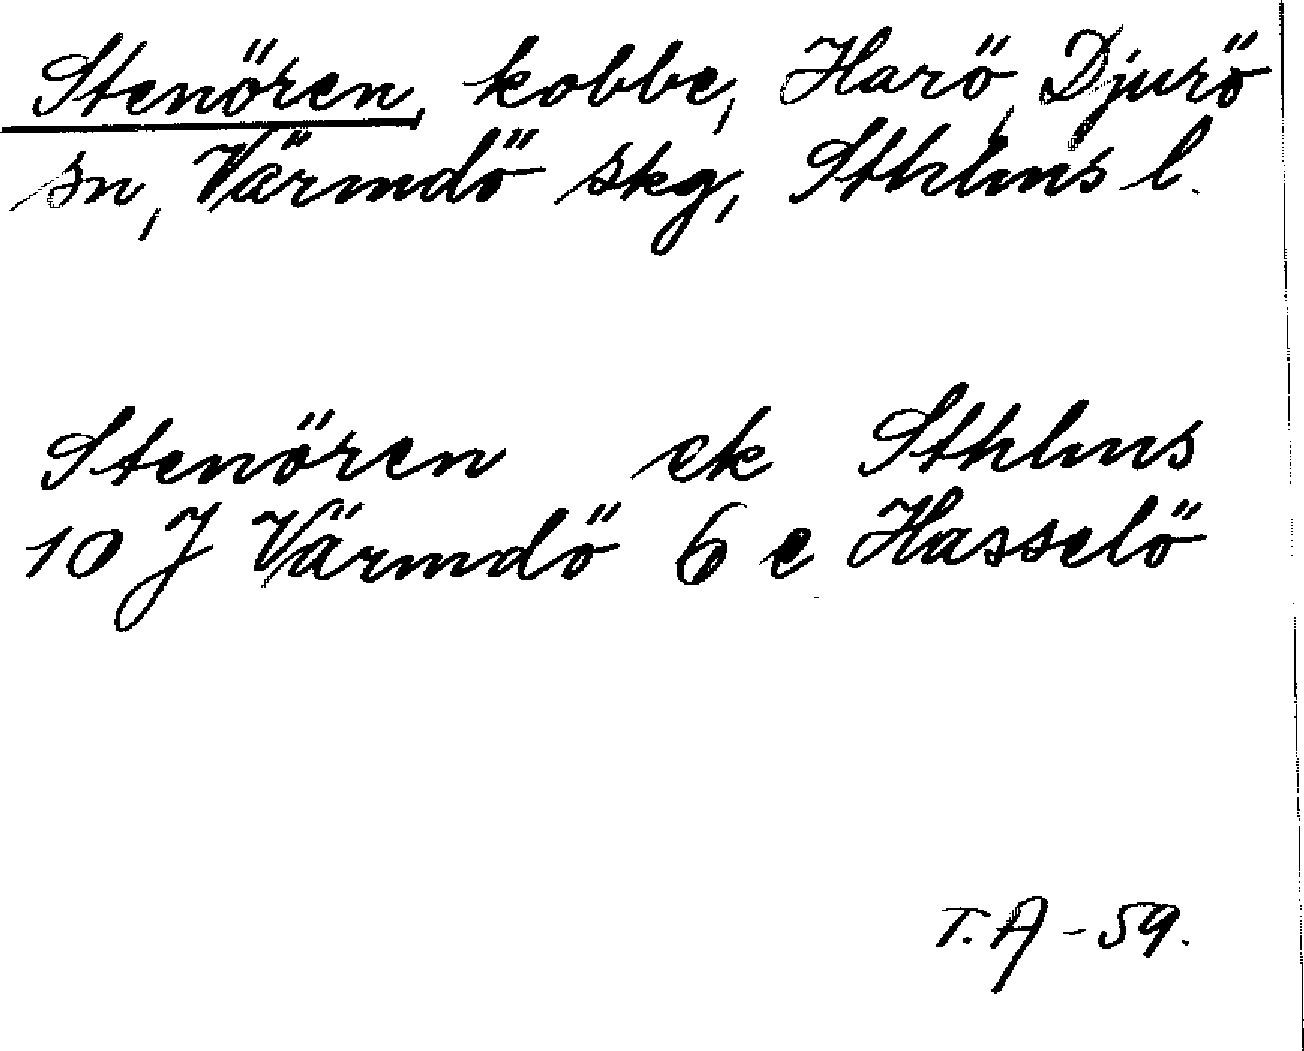 Stenören, kobbe, Harö, Djurö
sn, Värmdö skg, Sthlms l.
Stenören ek Sthlms
10 J Värmdö 6 e Hasselö
T.A -59.